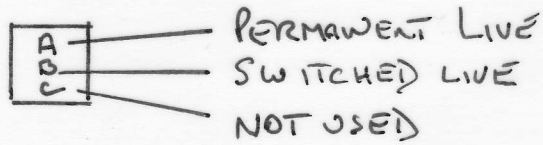 A PERMANENT LIVE
B SWITCHED LIVE
C NOT USED